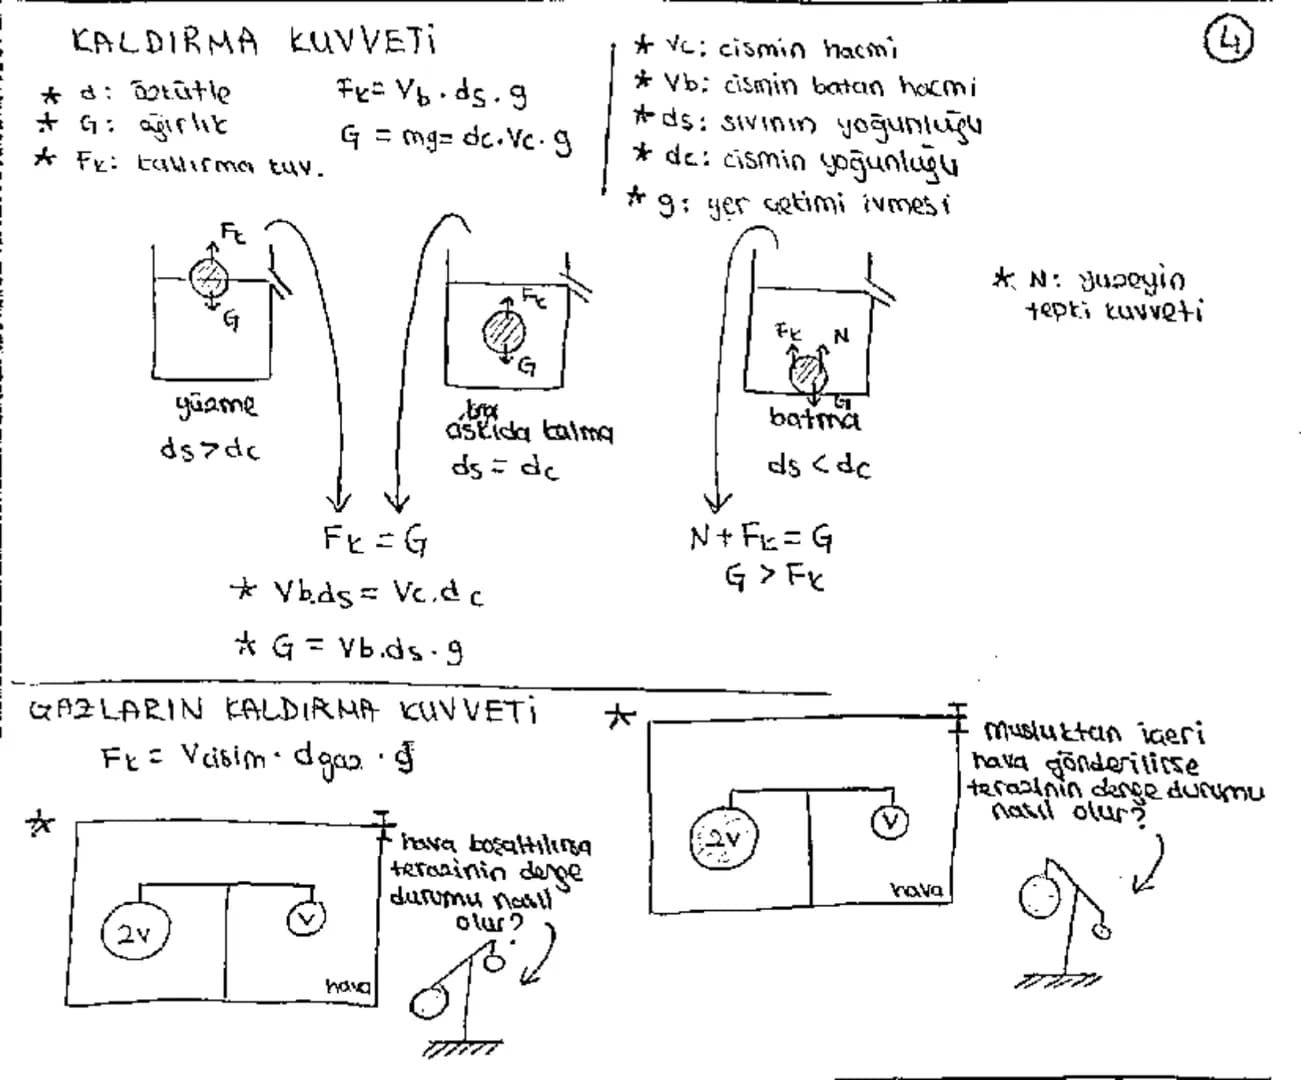 KALDIRMA KUVVETİ
* d: özkütle
* G: ağırlık
* Fk: kaldırma kuv.
Fk = Vb . ds . g
G = mg = dc . Vc . g
* Vc: cismin hacmi
* Vb: cismin batan hacmi
* ds: sıvının yoğunluğu
* dc: cismin yoğunluğu
* g: yer çekimi ivmesi
4
Fk
G
yüzme
ds > dc
Fk
G
askıda kalma
ds = dc
Fk
N
G
batma
ds < dc
* N: yüzeyin
tepki kuvveti
Fk = G
* Vb.ds = Vc.dc
* G = Vb.ds . g
N + Fk = G
G > Fk
GAZLARIN KALDIRMA KUVVETİ
Fk = Vcisim . dgaz . g
*
2V
V
hava
hava boşaltılırsa
terazinin denge
durumu nasıl
olur?
*
2V
V
hava
Musluktan içeri
hava gönderilirse
terazinin denge durumu
nasıl olur?